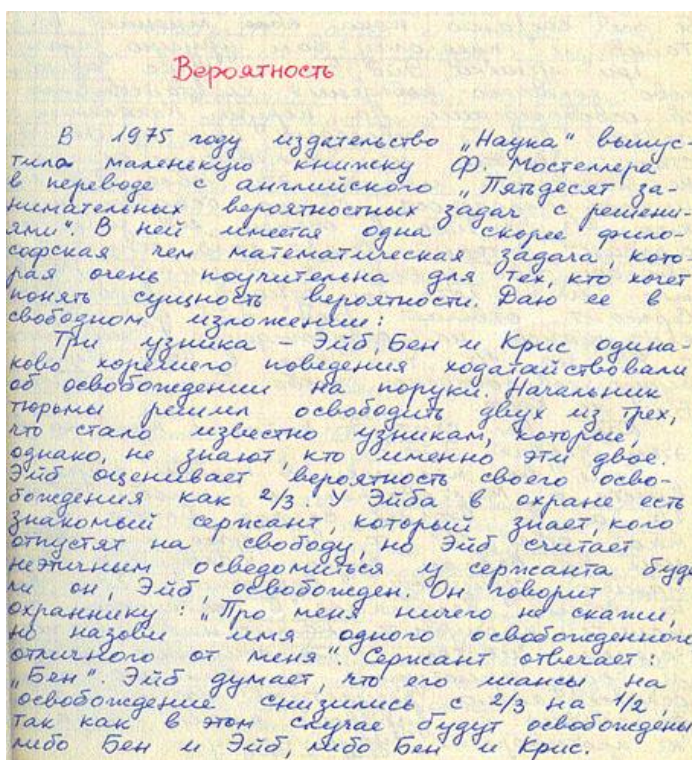 Вероятность
В 1975 году издательство „Наука" выпус-
тила маленькую книжку Ф. Мостеллера
в переводе с английского „Пятьдесят за-
нимательных вероятностных задач с решени-
ями". В ней имеется одна скорее фило-
софская чем математическая задача, кото-
рая очень поучительна для тех, кто хочет
понять сущность вероятности. Даю ее в
свободном изложении:
Три узника – Эйб, Бен и Крис одина-
ково хорошего поведения ходатайствовали
об освобождении на поруки. Начальник
тюрьмы решил освободить двух из трех,
что стало известно узникам, которые,
однако, не знают, кто именно эти двое.
Эйб оценивает вероятность своего осво-
бождения как 2/3. У Эйба в охране есть
знакомый сержант, который знает, кого
отпустят на свободу, но Эйб считает
неэтичным осведомиться у сержанта буде
ли он, Эйб, освобожден. Он говорит
охраннику: „Про меня ничего не скажи,
но назови имя одного освобожденного
отличного от меня". Сержант отвечает:
„Бен". Эйб думает, что его шансы на
освобождение снизились с 2/3 на 1/2,
так как в этом случае будут освобождены
либо Бен и Эйб, либо Бен и Крис.